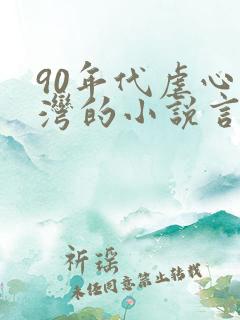 90年代虐心
灣的小説言
祈瑶
未经同意禁止转载